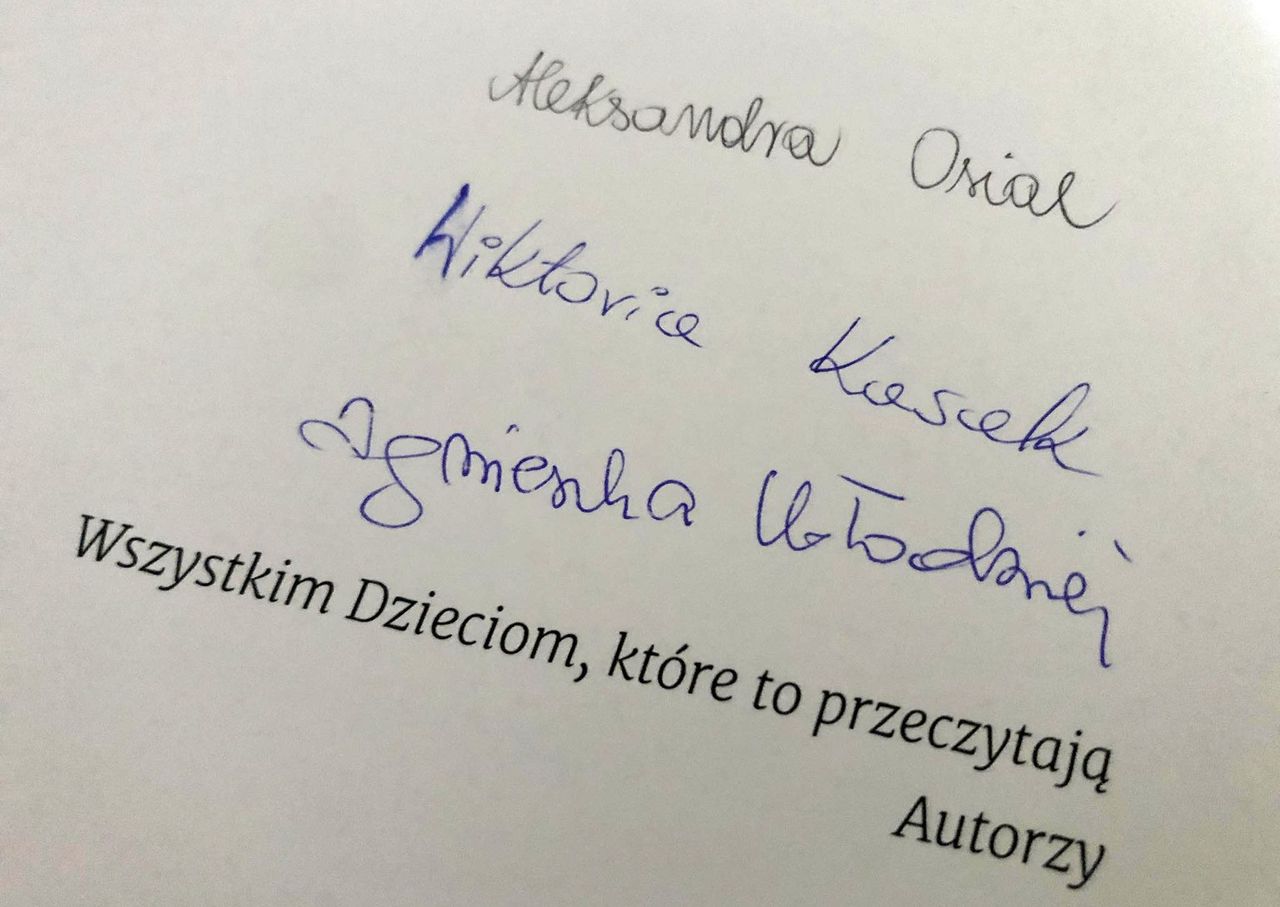 Aleksandra Osial
Wiktoria Kasak
Agnieszka
Wszystkim Dzieciom, które to przeczytają
Autorzy